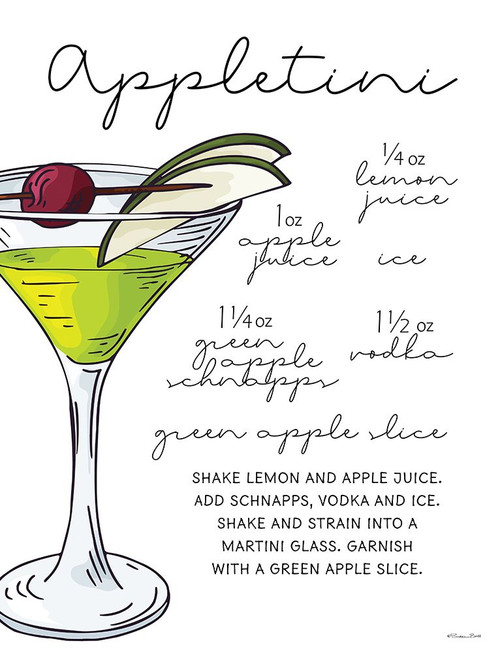 Appletini
1/4 oz
lemon
juice
1oz
apple
juice
ice
1 1/4 oz
green
apple
schnapps
1 1/2 oz
vodka
green apple slice
SHAKE LEMON AND APPLE JUICE.
ADD SCHNAPPS, VODKA AND ICE.
SHAKE AND STRAIN INTO A
MARTINI GLASS. GARNISH
WITH A GREEN APPLE SLICE.